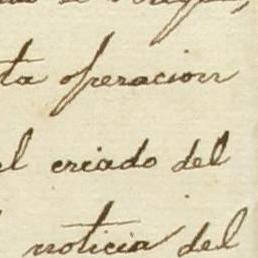 ta operacion
el criado del
noticia del